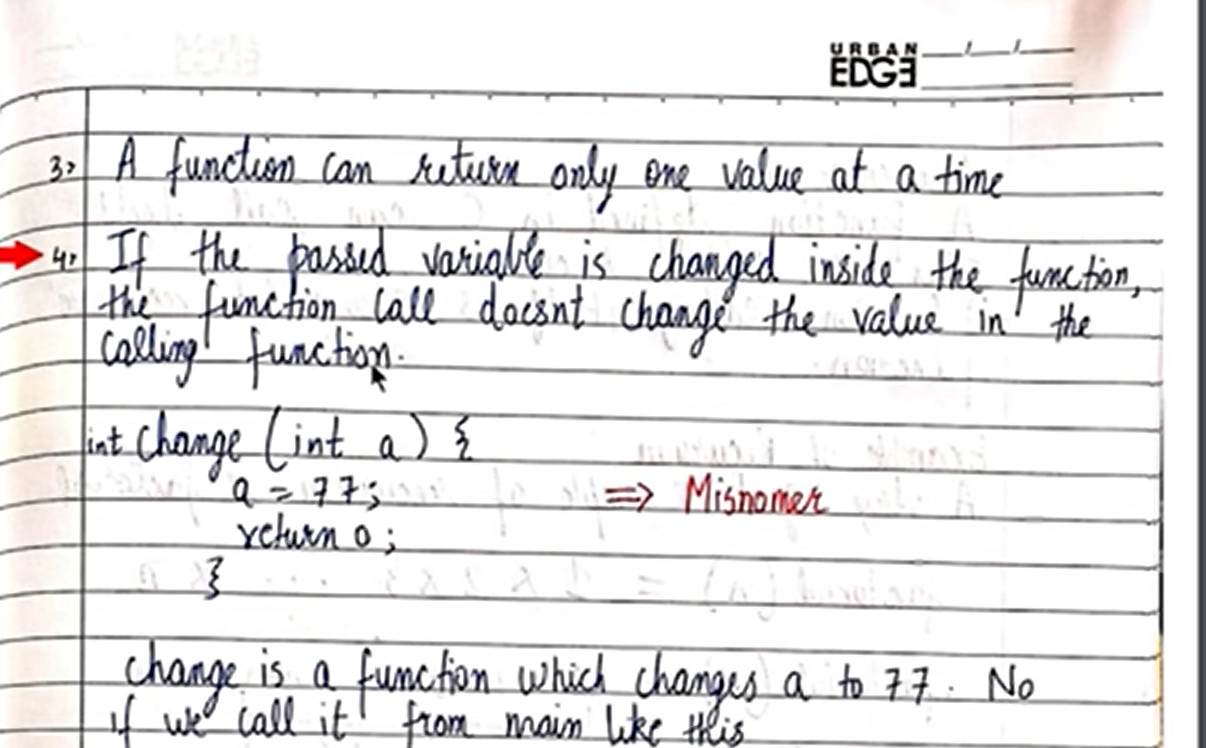 URBAN
EDGE
3> A function can return only one value at a time
4> If the passed variable is changed inside the function,
the function call doesnt change the value in the
calling function.
int change (int a) {
a = 77; ⇒ Misnomer
return 0;
}
change is a function which changes a to 77. No
if we call it from main like this